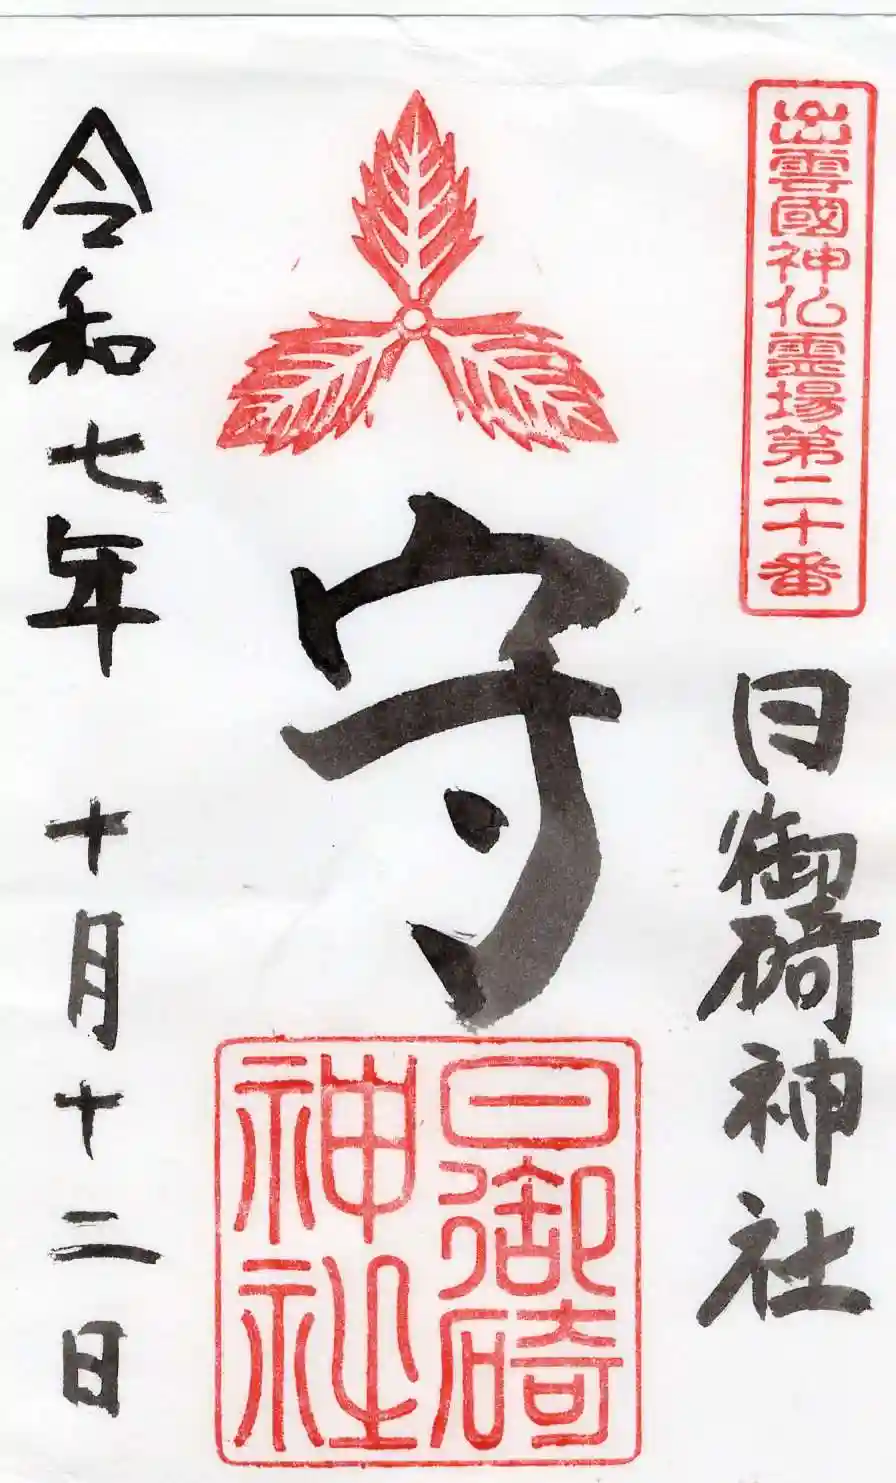 出雲國神仏霊場第二十番
日御碕神社
守
日御碕
神社
令和七年 十月十二日